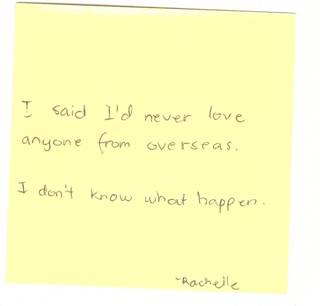 I said I'd never love
anyone from overseas.
I don't know what happen.
-Rachelle